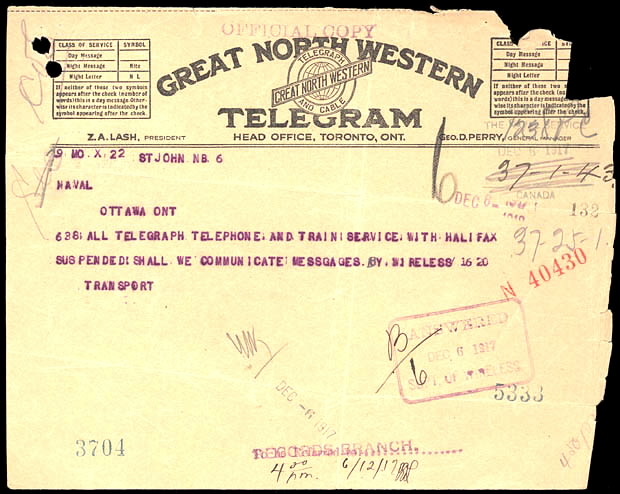 OFFICIAL COPY
CLASS OF SERVICE SYMBOL
Day Message
Night Message Nite
Night Letter N L
If neither of these two symbols
appears after the check (number of
words) this is a day message. Other-
wise its character is indicated by the
symbol appearing after the check.
GREAT NORTH WESTERN
TELEGRAPH
GREAT NORTH WESTERN
AND CABLE
TELEGRAM
Z.A. LASH, PRESIDENT
HEAD OFFICE, TORONTO, ONT.
GEO. D. PERRY, GENERAL MANAGER
CLASS OF SERVICE
Day Message
Night Message
Night Letter
If neither of these two symbols
appears after the check
words) this is a day message. Other-
wise its character is indicated by the
symbol appearing after the check.
9 MO. X. 22 ST JOHN NB. 6
DEC 6 1917
37-1-43
CANADA
NAVAL
DEC 6 1917
132
OTTAWA ONT
638: ALL TELEGRAPH TELEPHONE: AND TRAIN: SERVICE: WITH HALIFAX
37-25-1
SUSPENDED: SHALL WE COMMUNICATE MESSGAGES. BY. WIRELESS/ 16 20
N 40430
TRANSPORT
B/6
ANSWERED
DEC 6 1917
SUPT. OF WIRELESS.
5333
DEC -6 1917
3704
RECORDS BRANCH.
4 00 pm. 6/12/17